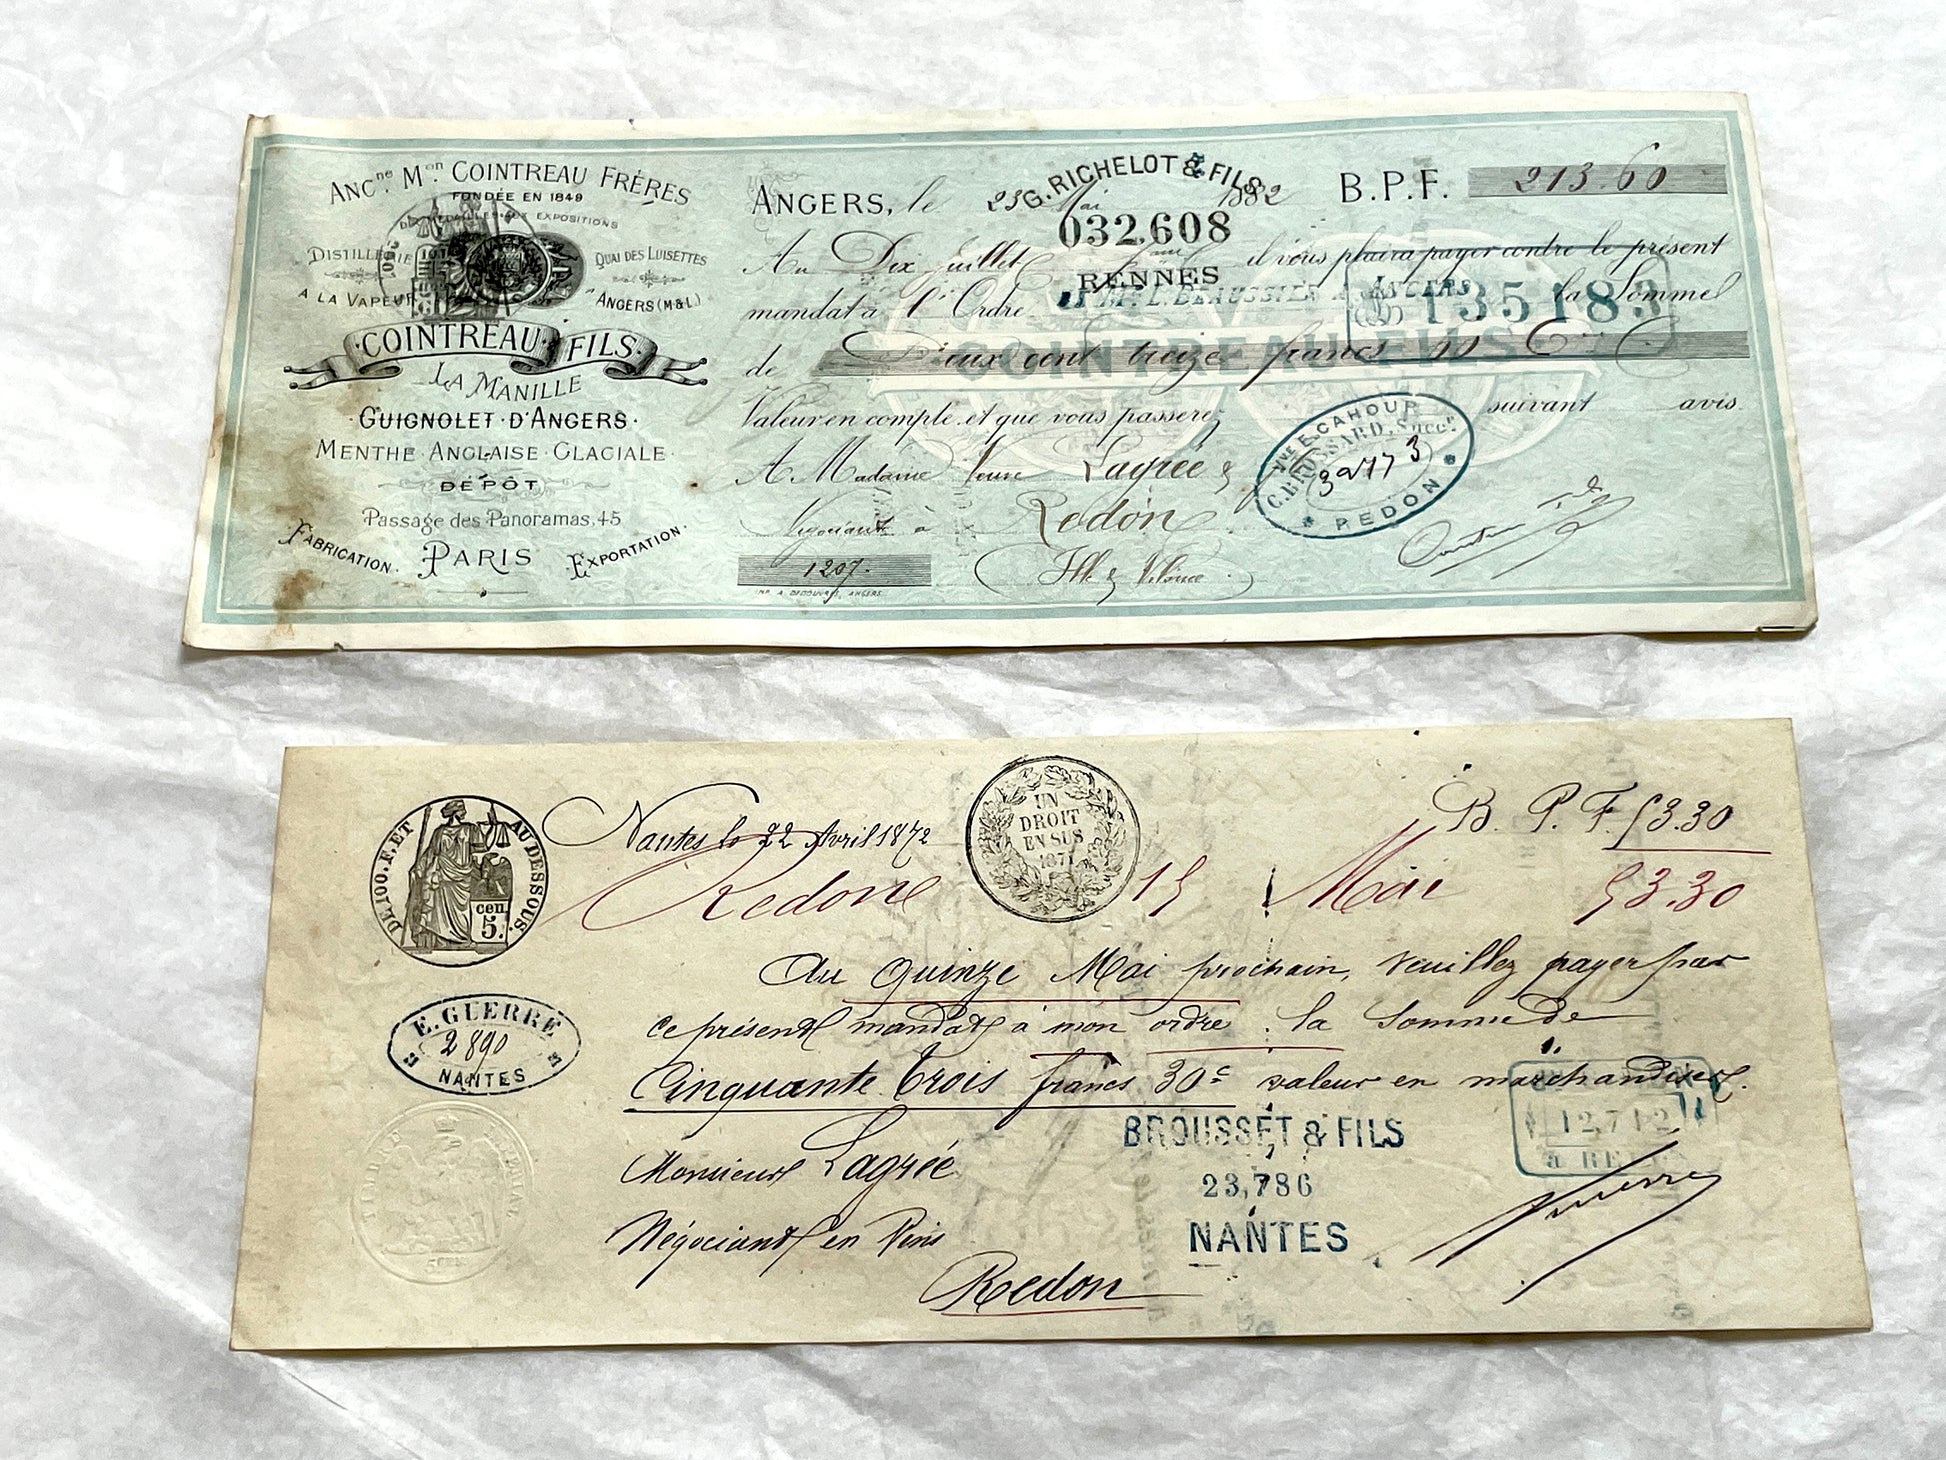 ANCne. Mon COINTREAU FRÈRES
FONDÉE EN 1849
MEDAILLES AUX EXPOSITIONS
DISTILLERIE
A LA VAPEUR
QUAI DES LUISETTES
ANGERS (M&L)
COINTREAU FILS
LA MANILLE
GUIGNOLET D'ANGERS.
MENTHE ANGLAISE GLACIALE
DÉPÔT
Passage des Panoramas, 45
FABRICATION. PARIS EXPORTATION.
ANGERS, le 23 Mai 1882 B.P.F. 213.60
G. RICHELOT & FILS
032,608
RENNES
Au Dix Juillet il vous plaira payer contre le présent
mandat à l'Ordre la Somme
135183
de Deux cent treize francs
COINTREAU FILS
Valeur en compte et que vous passerez suivant avis
A Madame Veuve Lagrée &
Négociant à Redon
Ille & Vilaine
1207.
IMP. A. DEDOUVRES, ANGERS
Vve E. CAHOUR
C. BROSSARD, Succr.
32773
REDON
DE 100.F. ET AU DESSOUS.
cen. 5.
Nantes le 22 Avril 1872
UN
DROIT
EN SUS
1871
B. P. F. 53.30
Redon 15 Mai 53.30
Au quinze Mai prochain, veuillez payer par
ce présent mandat à mon ordre la Somme de
Cinquante Trois francs 30c valeur en marchandises.
E. GUERRE
2890
NANTES
Monsieur Lagrée
Négociant en Vins
Redon
BROUSSET & FILS
23,786
NANTES
12,712
Guerre